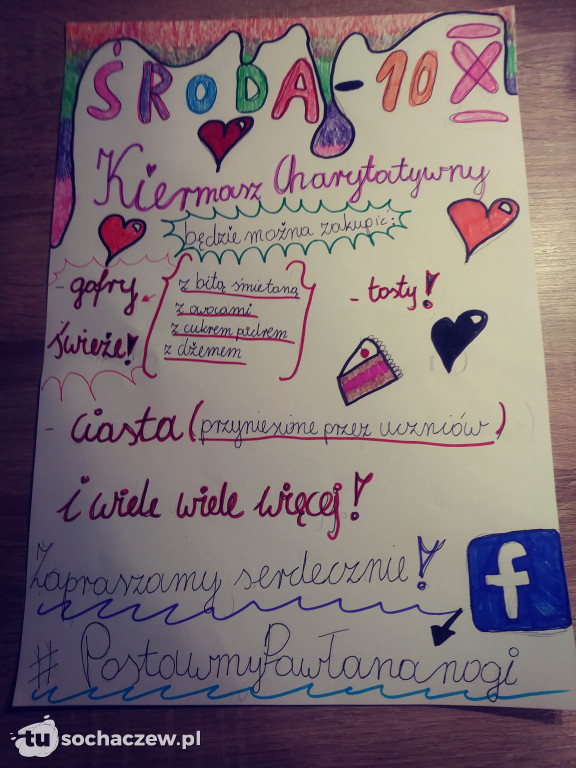 ŚRODA - 10 X
Kiermasz Charytatywny
będzie można zakupić:
- gofry
świeże!
z bitą śmietaną
z owocami
z cukrem pudrem
z dżemem
- tosty!
- ciasta (przyniesione przez uczniów)
i wiele wiele więcej!
Zapraszamy serdecznie!
f
# PostawmyPawłananogi
tu sochaczew.pl